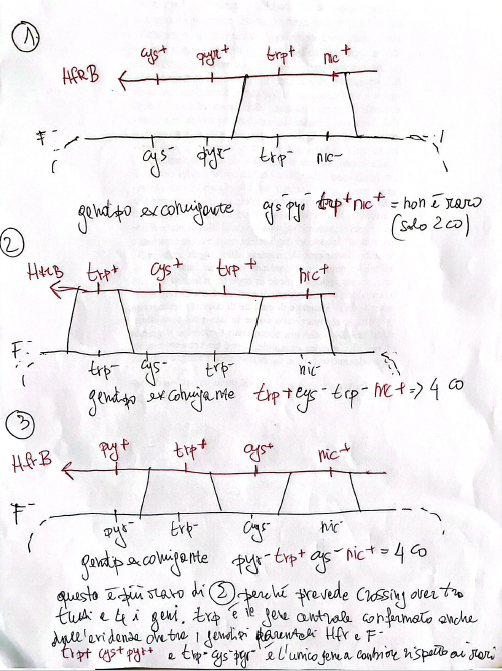 1
cys+ pyr+ trp+ nic+
HfrB
F-
cys- pyr- trp- nic-
genotipo exconiugante cys- pyr- trp+ nic+ = non è raro
(solo 2 co)
2
HfrB trp+ cys+ trp+ nic+
F-
trp- cys- trp- nic-
genotipo exconiugante trp+ cys- trp- nic+ => 4 co
3
HfrB py+ trp+ cys+ nic+
F-
pyr- trp- cys- nic-
genotip exconiugante pyr- trp+ cys- nic+ = 4 co
questo è più raro di 2 perché prevede crossing over tra
tutti e 4 i geni. trp è il gene centrale confermato anche
dall'evidenza che tra i genotipi parentali Hfr e F-
trp+ cys+ pyr+ e trp- cys- pyr- è l'unico gene a cambiare rispetto ai